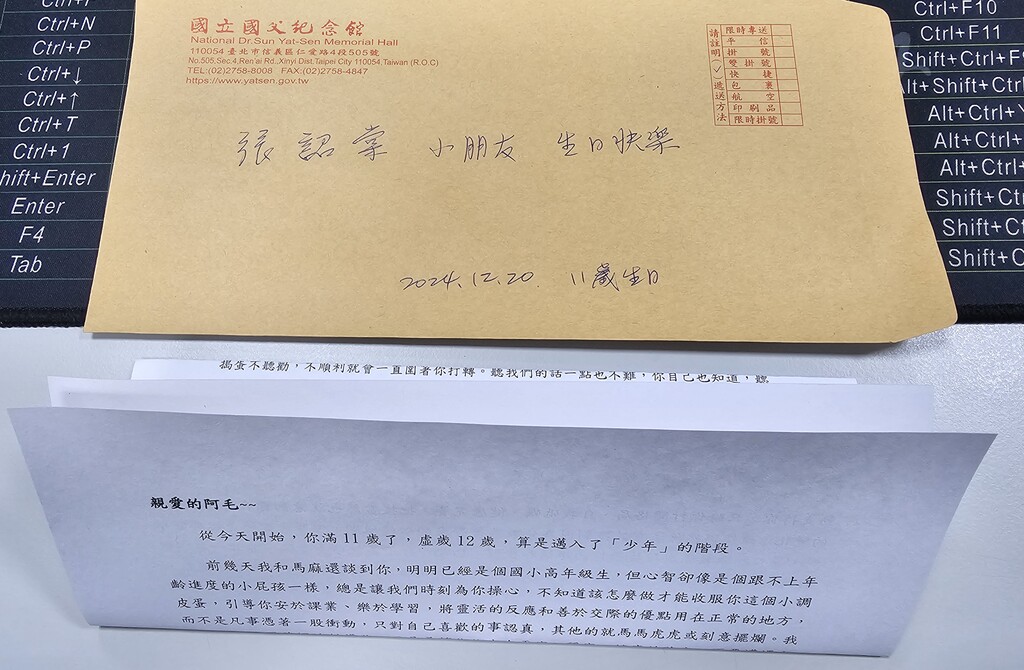 Ctrl+N
Ctrl+P
Ctrl+↓
Ctrl+↑
Ctrl+T
Ctrl+1
hift+Enter
Enter
F4
Tab
國立國父紀念館
National Dr.Sun Yat-Sen Memorial Hall
110054 臺北市信義區仁愛路4段505號
No.505,Sec.4,Ren'ai Rd.,Xinyi Dist.Taipei City 110054,Taiwan (R.O.C)
TEL:(02)2758-8008 FAX:(02)2758-4847
https://www.yatsen.gov.tw
請註明(✓)遞送方法
限時專送
平信
掛號
雙掛號
快捷
包裹
航空
印刷品
限時掛號
Ctrl+F10
Ctrl+F11
Shift+Ctrl+F
Alt+Shift+Ctrl
Alt+Ctrl+Y
Alt+Ctrl+
Alt+Ctrl+
Shift+Ctr
Shift+Ct
Shift+C
張詔棠 小朋友 生日快樂
2024.12.20. 11歲生日
搗蛋不聽勸,不順利就會一直圍著你打轉。聽我們的話一點也不難,你自己也知道,聽
親愛的阿毛~~
從今天開始,你滿11歲了,虛歲12歲,算是邁入了「少年」的階段。
前幾天我和馬麻還談到你,明明已經是個國小高年級生,但心智卻像是個跟不上年
齡進度的小屁孩一樣,總是讓我們時刻為你操心,不知道該怎麼做才能收服你這個小調
皮蛋,引導你安於課業、樂於學習,將靈活的反應和善於交際的優點用在正常的地方,
而不是凡事憑著一股衝動,只對自己喜歡的事認真,其他的就馬馬虎虎或刻意擺爛。我